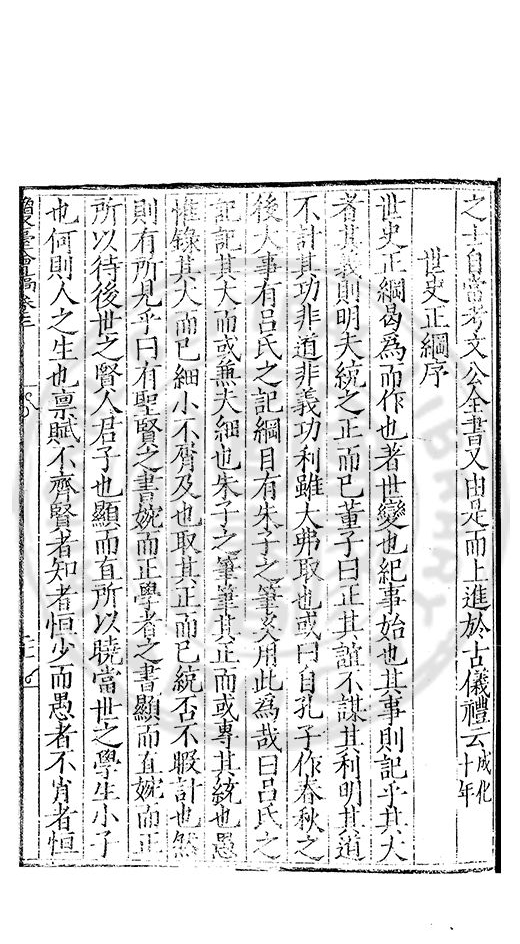 之士自當考文公全書又由是而上進於古儀禮云成化十年
世史正綱序
世史正綱曷為而作也著世變也紀事始也其事則記乎其大
者其義則明夫統之正而已董子曰正其誼不謀其利明其道
不計其功非道非義功利雖大弗取也或曰自孔子作春秋之
後大事有呂氏之記綱目有朱子之筆奚用此為哉曰呂氏之
記記其大而或兼夫細也朱子之筆筆其正而或專其統也愚
惟錄其大而已細小不屑及也取其正而已統否不暇計也然
則有所見乎曰有聖賢之書婉而正學者之書顯而直婉而正
所以待後世之賢人君子也顯而直所以曉當世之學生小子
也何則人之生也禀賦不齊賢者知者恒少而愚者不肖者恒